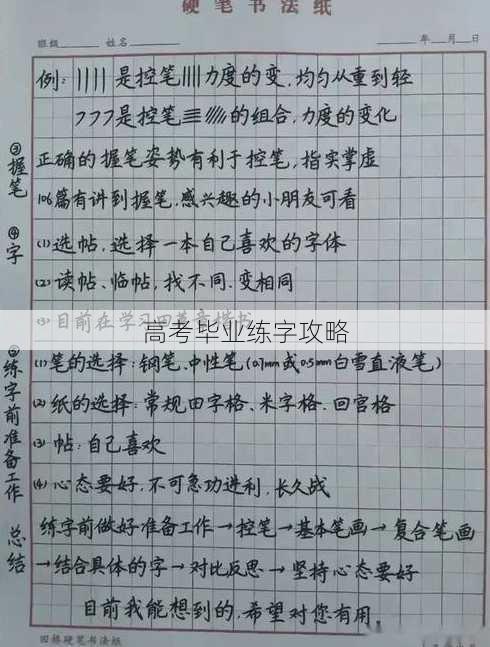 硬笔书法纸
班级 姓名 年 月 日
例: |||| 是控笔||||力度的变,均匀从重到轻
フフフ是控笔的组合,力度的变化
③握笔
正确的握笔姿势有利于控笔,指实掌虚
106篇有讲到握笔,感兴趣的小朋友可看
④字
(1)选帖,选择一本自己喜欢的字体
(2)读帖、临帖,找不同.变相同
(3)目前在学习田英章楷书
高考毕业练字攻略
练字前准备工作
(1)笔的选择:钢笔、中性笔(0.7mm或0.5mm白雪直液笔)
(2)纸的选择:常规田字格、米字格.回宫格
(3)帖:自己喜欢
(4)心态要好,不可急功进利,长久战
总结
练字前做好准备工作→控笔→基本笔画→复合笔画
→结合具体的字→对比反思→坚持心态要好
目前我能想到的,希望对您有用
硬笔书法纸